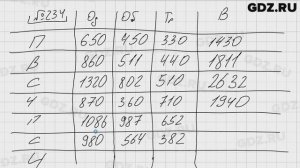 GDZ.RU
№234 Од Об Тр В
П 650 450 330 1430
В 860 511 440 1811
С 1320 802 510 2632
Ч 870 360 710 1940
П 1086 987 652
С 980 564 382
Ч